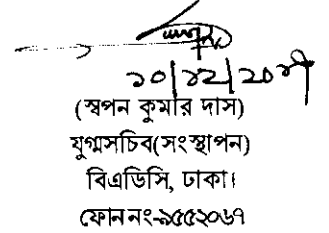 ১০/১২/২০১৭
(স্বপন কুমার দাস)
যুগ্মসচিব(সংস্থাপন)
বিএডিসি, ঢাকা।
ফোন নং-৯৫৫২০৬৭